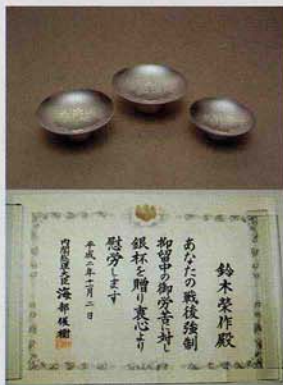 鈴木栄作殿
あなたの戦後強制
抑留中の御労苦に対し
銀杯を贈り衷心より
慰労します
平成二年十一月二日
内閣総理大臣 海部俊樹